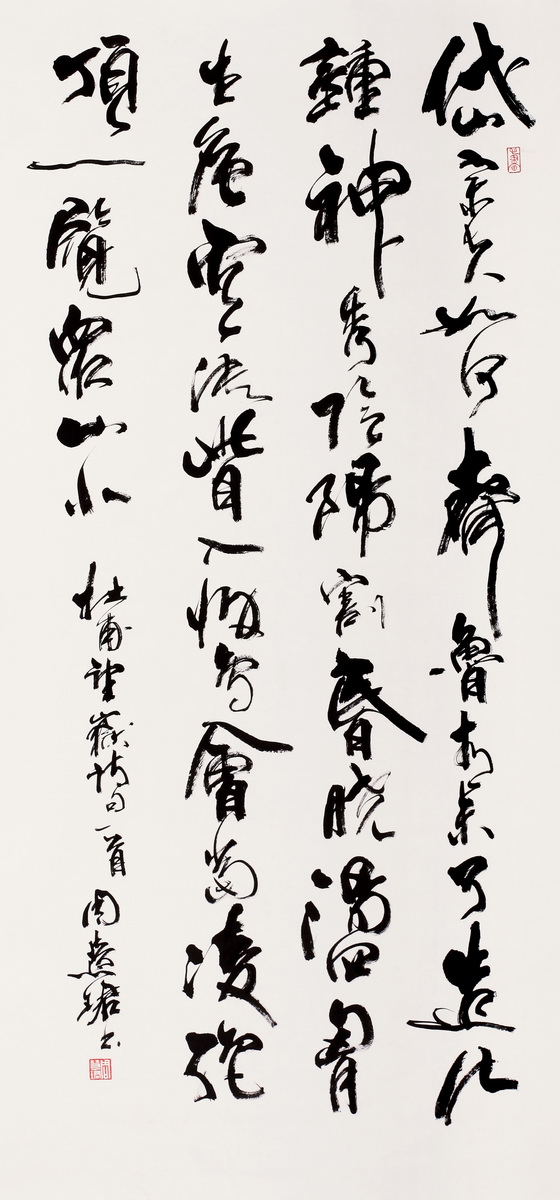 岱宗夫如何齊魯青未了造化
鍾神秀陰陽割昏曉盪胷
生層雲決眥入歸鳥會當凌絕
頂一覽眾山小 杜甫望嶽詩句一首 周慧珺書